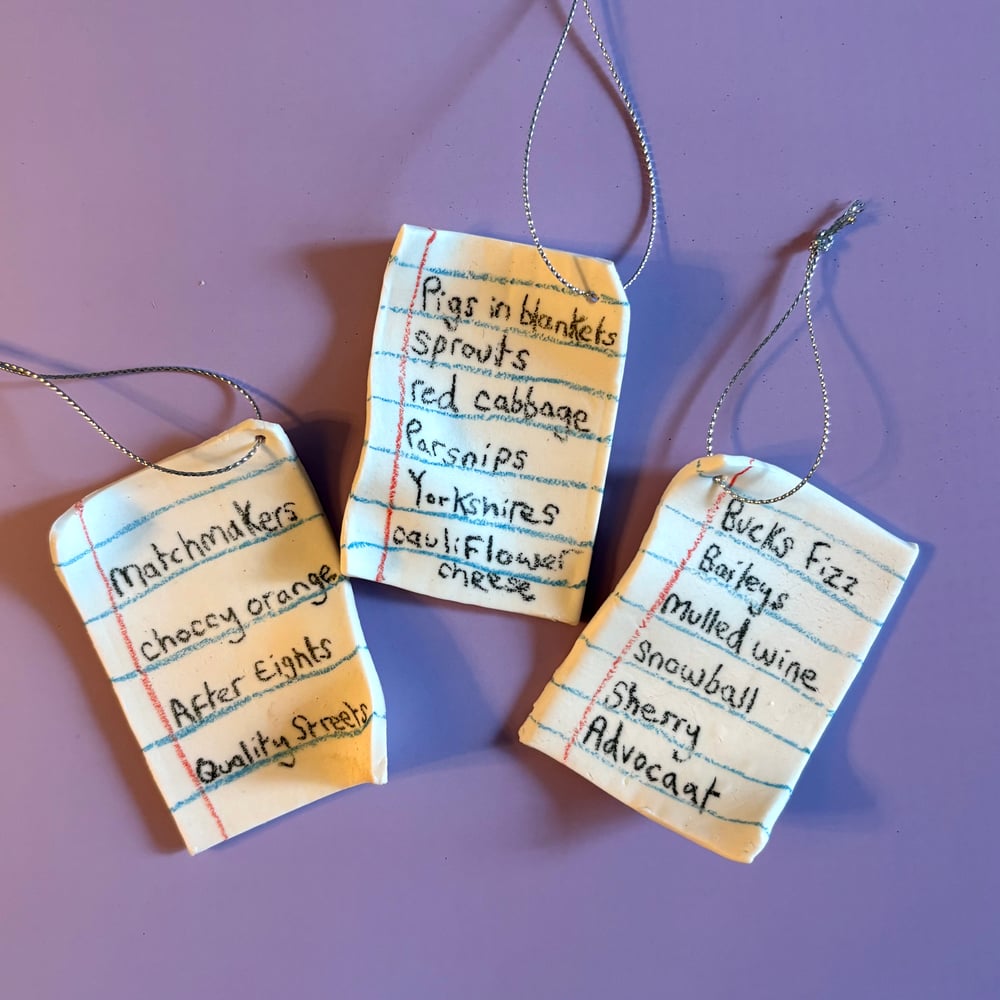 Matchmakers
choccy orange
After Eights
Quality Streets
Pigs in blankets
sprouts
red cabbage
Parsnips
Yorkshires
cauliflower
cheese
Bucks Fizz
Baileys
Mulled wine
Snowball
Sherry
Advocaat